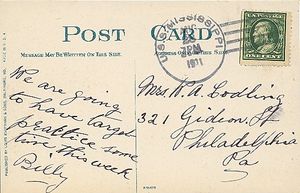 POST CARD
MESSAGE MAY BE WRITTEN ON THIS SIDE.
U.S.S. MISSISSIPPI
7PM
1911
ONE CENT
We are going
to have target
practice some
time this week
Billy
Mrs. W A Codling
321 Gideon St
Philadelphia
Pa